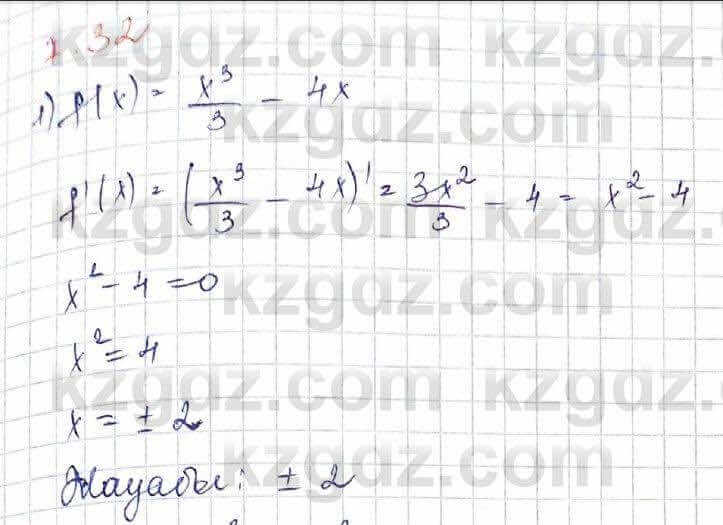 1.32
1) f(x) = x³/3 - 4x
f'(x) = (x³/3 - 4x)' = 3x²/3 - 4 = x² - 4
x² - 4 = 0
x² = 4
x = ± 2
Жауабы: ± 2
kzgdz.com kzgdz.com
kzgdz.com
kzgdz.com kzgdz.com
kzgdz.com
kzgdz.com kzgdz.com
kzgdz.com